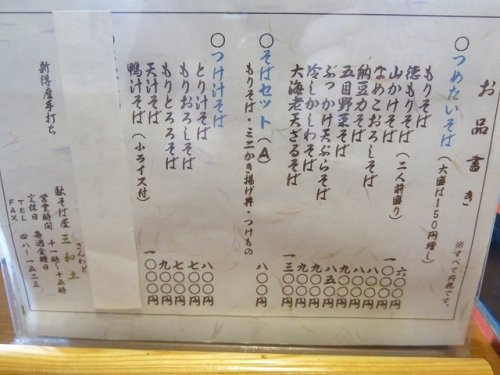 お品書き
※すべて内税です。
○つめたいそば (大盛は150円増し)
もりそば 六〇〇円
徳もりそば (二人前盛り) 一〇〇〇円
山かけそば 八〇〇円
なめこおろしそば 八〇〇円
納豆力そば
五目野菜そば
ぶっかけ天ぷらそば
冷しかしわそば 九〇〇円
大海老天ざるそば 一三〇〇円
○そばセット (A)
もりそば・ミニかき揚げ丼・つけもの 八〇〇円
○つけ汁そば
とり汁そば 八〇〇円
もりおろしそば 七〇〇円
もりとろろそば 七〇〇円
天汁そば 九〇〇円
鴨汁そば (小ライス付) 一〇〇〇円
新得産手打ち
さんわど
駄そば屋 三和土
営業時間 十一時〜十五時
定休日 毎週金曜日
TEL
FAX 四八-一五三三